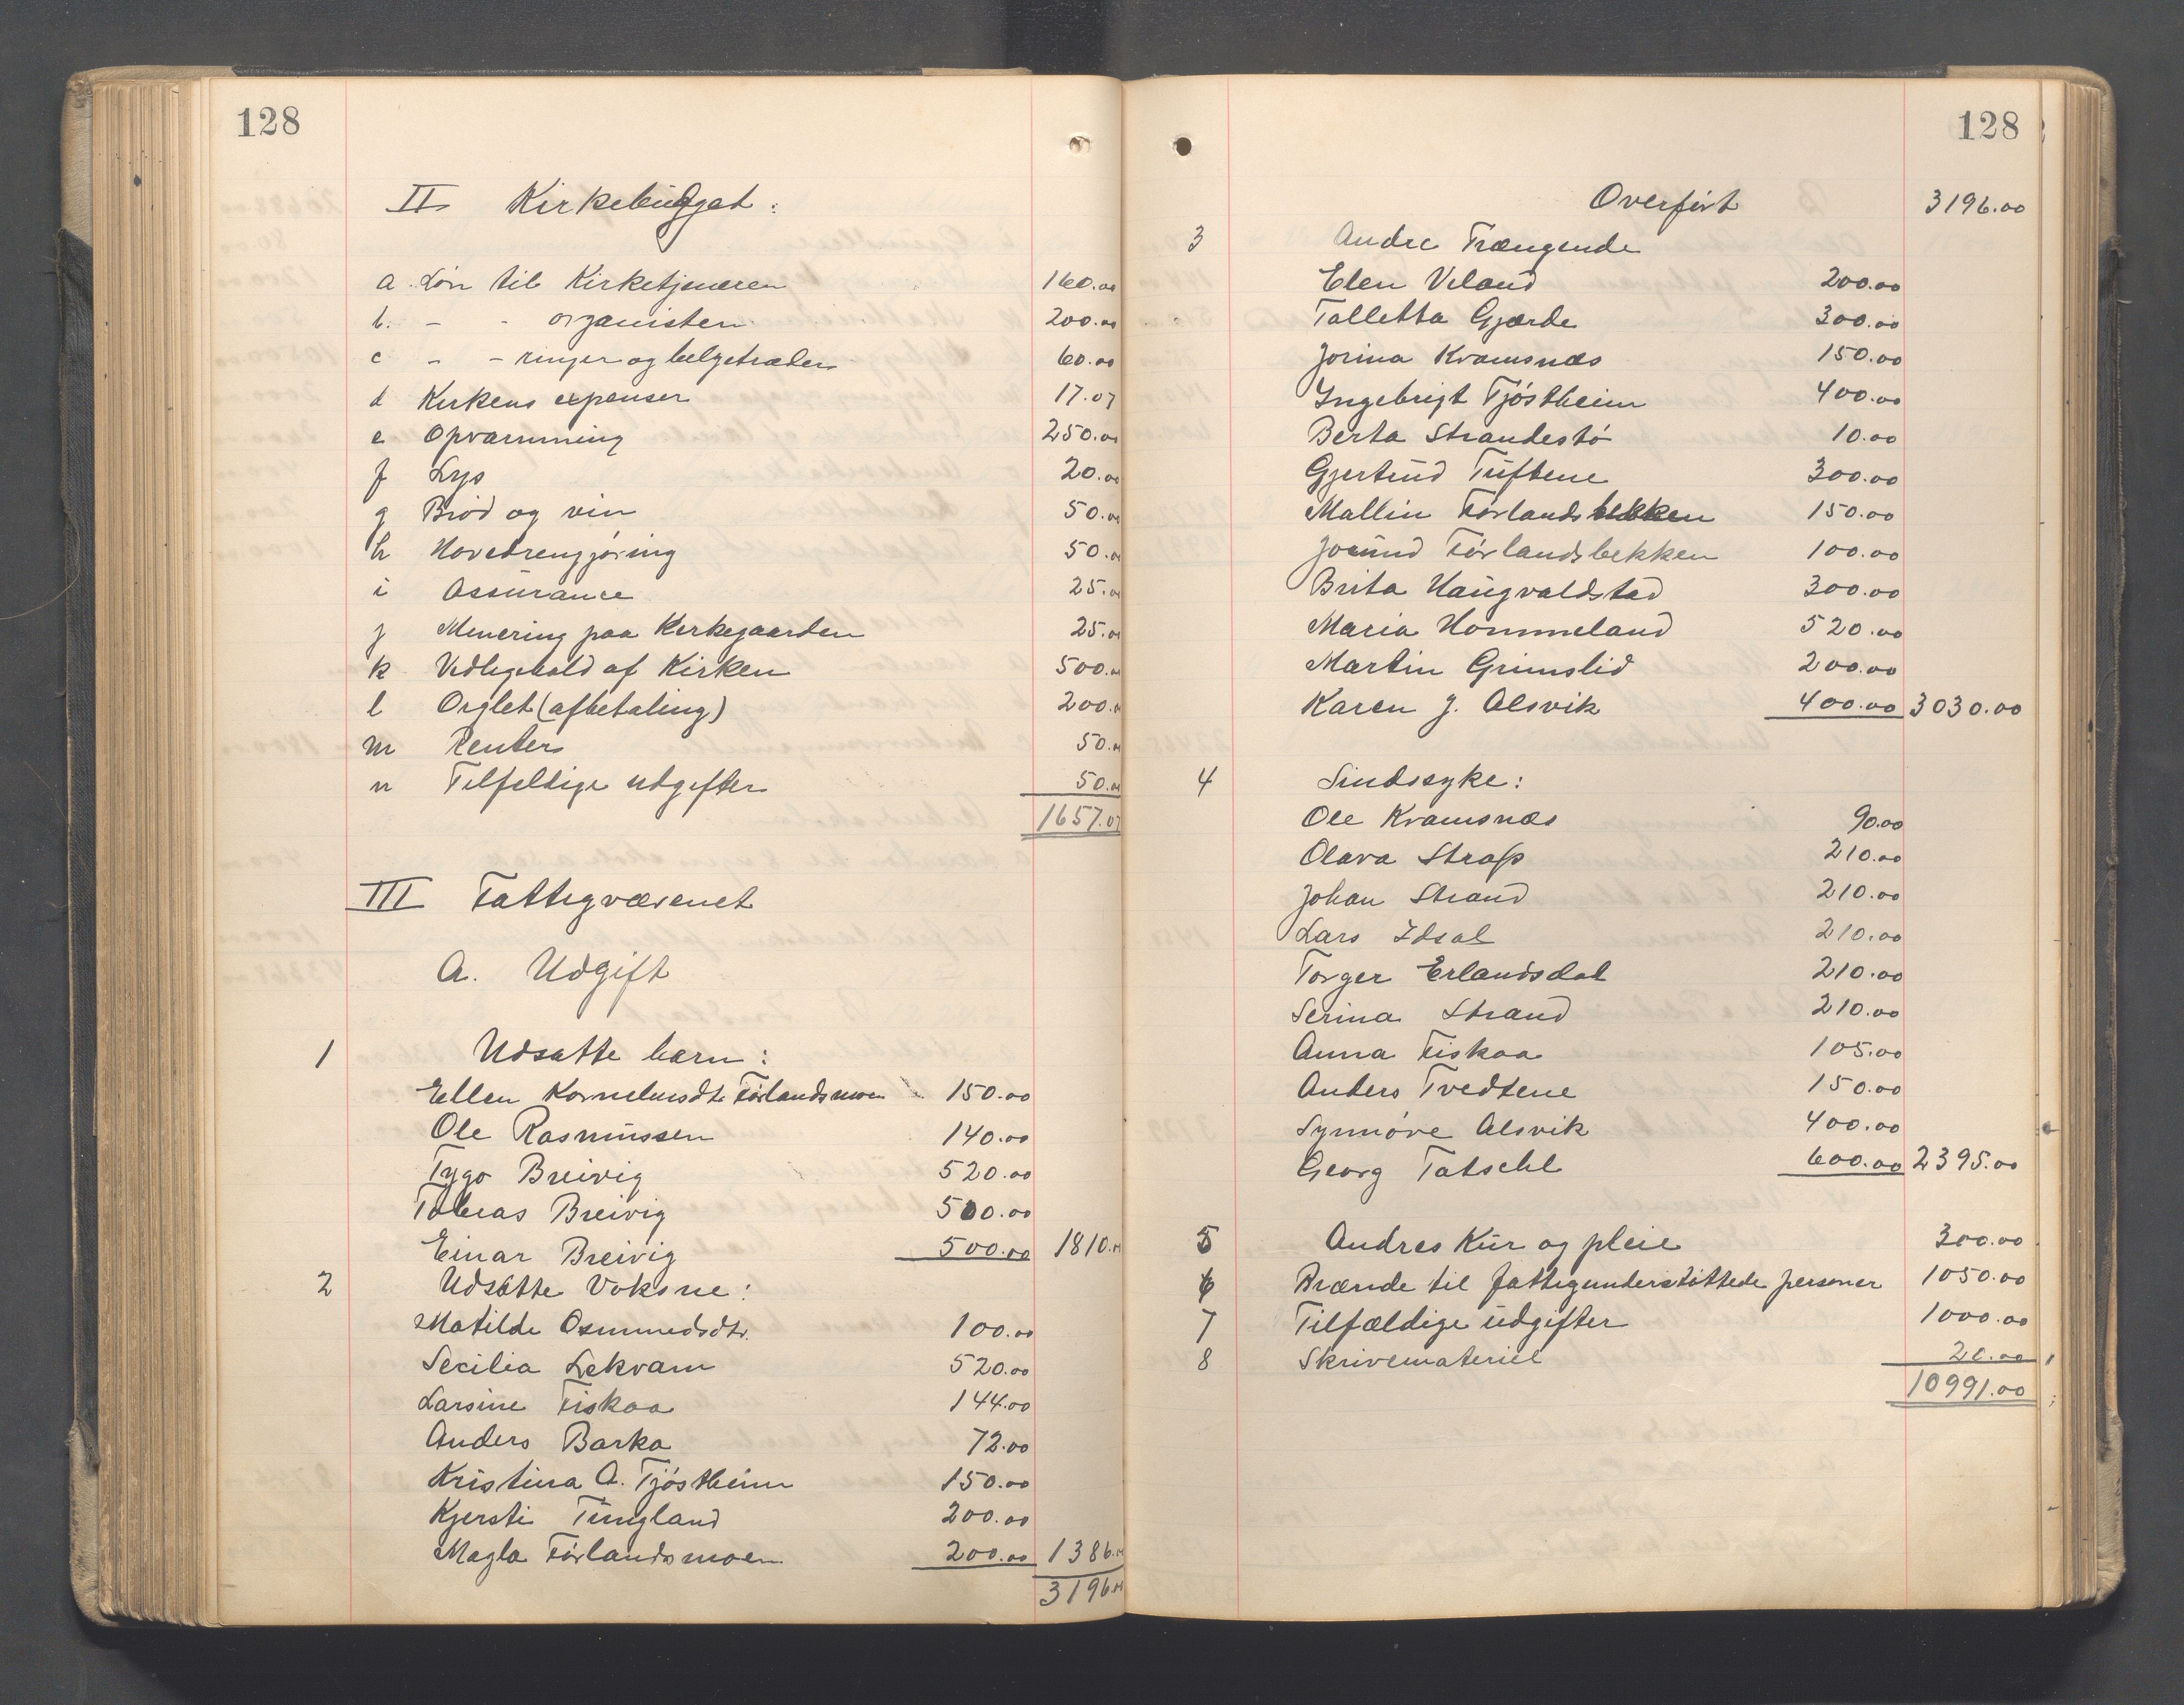 128
II Kirkebudget:
a. Løn til Kirketjeneren 160.00
b. - - organisten 200.00
c - - ringer og belgetræder 60.00
d Kirkens expenser 17.07
e Opvarmning 250.00
f Lys 20.00
g Brød og vin 50.00
h Hovedrengjøring 50.00
i Assurance 25.00
j Minering paa Kirkegaarden 25.00
k Vedligehold af Kirken 500.00
l Orglet (afbetaling) 200.00
m Renter 50.00
n Tilfeldige udgifter 50.00
1657.07
III Fattigvæsenet
A. Udgift
1 Udsatte barn:
Ellen Kornelusdtr Førlandsmoen 150.00
Ole Rasmussen 140.00
Tygo Breivig 520.00
Tobias Breivig 500.00
Einar Breivig 500.00 1810.00
2 Udsatte Voksne:
Matilde Osmundsdtr. 100.00
Secilia Lekvam 520.00
Larsine Fiskaa 144.00
Anders Barka 72.00
Kristina A. Tjøstheim 150.00
Kjersti Tungland 200.00
Magla Førlandsmoen 200.00 1386.00
3196.00
128
Overført 3196.00
3 Andre Trængende
Elen Veland 200.00
Talletta Gjærde 300.00
Jorina Kvamsnæs 150.00
Ingebrigt Tjøstheim 400.00
Berta Strandestø 10.00
Gjertrud Tuftene 300.00
Mallin Førlandsbekken 150.00
Jorund Førlandsbekken 100.00
Brita Haugvaldstad 300.00
Maria Hommeland 520.00
Martin Grimslid 200.00
Karen J. Alsvik 400.00 3030.00
4 Sindssyke:
Ole Kvamsnæs 90.00
Olava Strass 210.00
Johan Strand 210.00
Lars Idsal 210.00
Torger Erlandsdal 210.00
Serina Strand 210.00
Anna Fiskaa 105.00
Anders Tvedtene 150.00
Synnøve Alsvik 400.00
Georg Tatschl 600.00 2395.00
5 Andres Kur og pleie 300.00
6 Brænde til fattigunderstøttede personer 1050.00
7 Tilfældige udgifter 1000.00
8 Skrivemateriel 20.00
10991.00